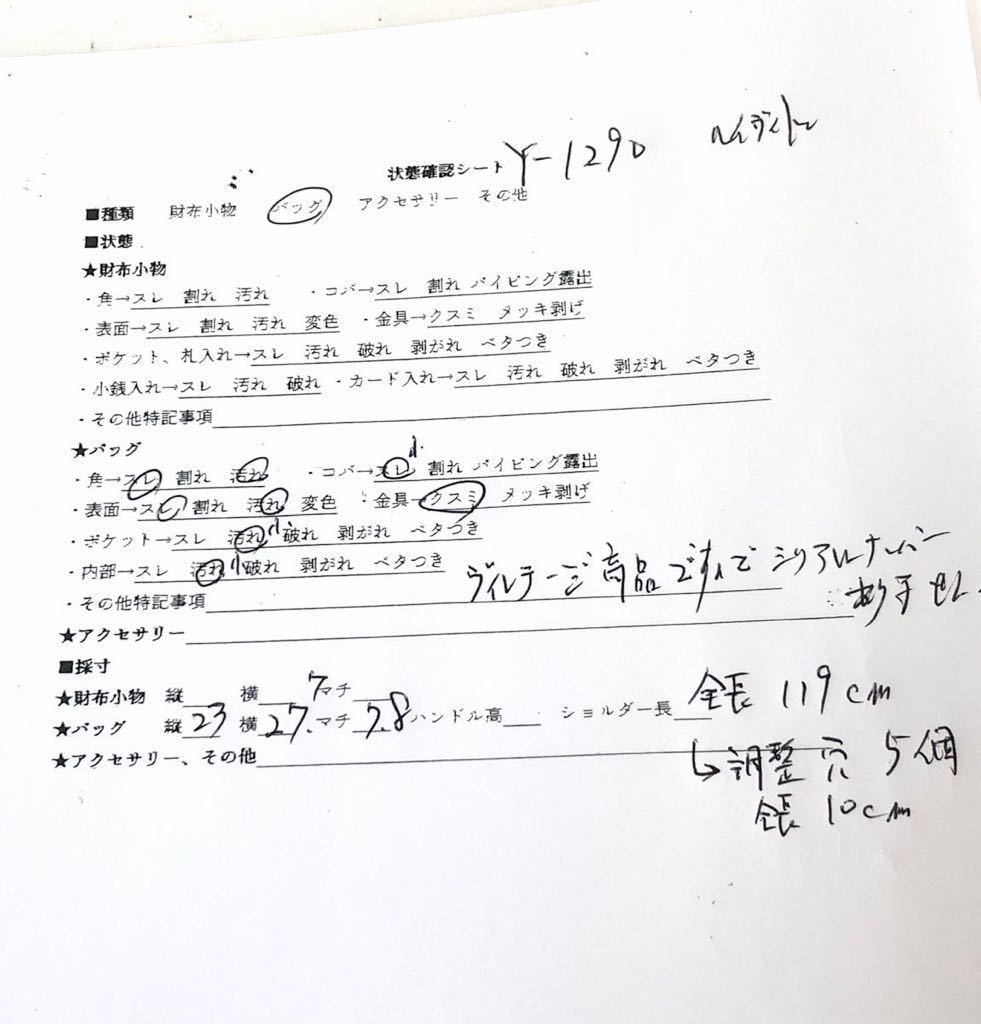 状態確認シート Y-1290
■種類 財布小物 バッグ アクセサリー その他
■状態
★財布小物
・角→スレ 割れ 汚れ ・コバ→スレ 割れ パイピング露出
・表面→スレ 割れ 汚れ 変色 ・金具→クスミ メッキ剥げ
・ポケット、札入れ→スレ 汚れ 破れ 剥がれ ベタつき
・小銭入れ→スレ 汚れ 破れ ・カード入れ→スレ 汚れ 破れ 剥がれ ベタつき
・その他特記事項
★バッグ
・角→スレ 割れ 汚れ ・コバ→スレ 小 割れ パイピング露出
・表面→スレ 割れ 汚れ 変色 ・金具→クスミ メッキ剥げ
・ポケット→スレ 汚れ 小 破れ 剥がれ ベタつき
・内部→スレ 汚れ 小 破れ 剥がれ ベタつき
・その他特記事項 ヴィンテージ商品ですので シリアルナンバー
ありません
★アクセサリー
■採寸
★財布小物 縦 横 マチ
★バッグ 縦 23 横 27. マチ 7.8 ハンドル高 ショルダー長 全長 119cm
★アクセサリー、その他
↳調整穴 5個
全長 10cm